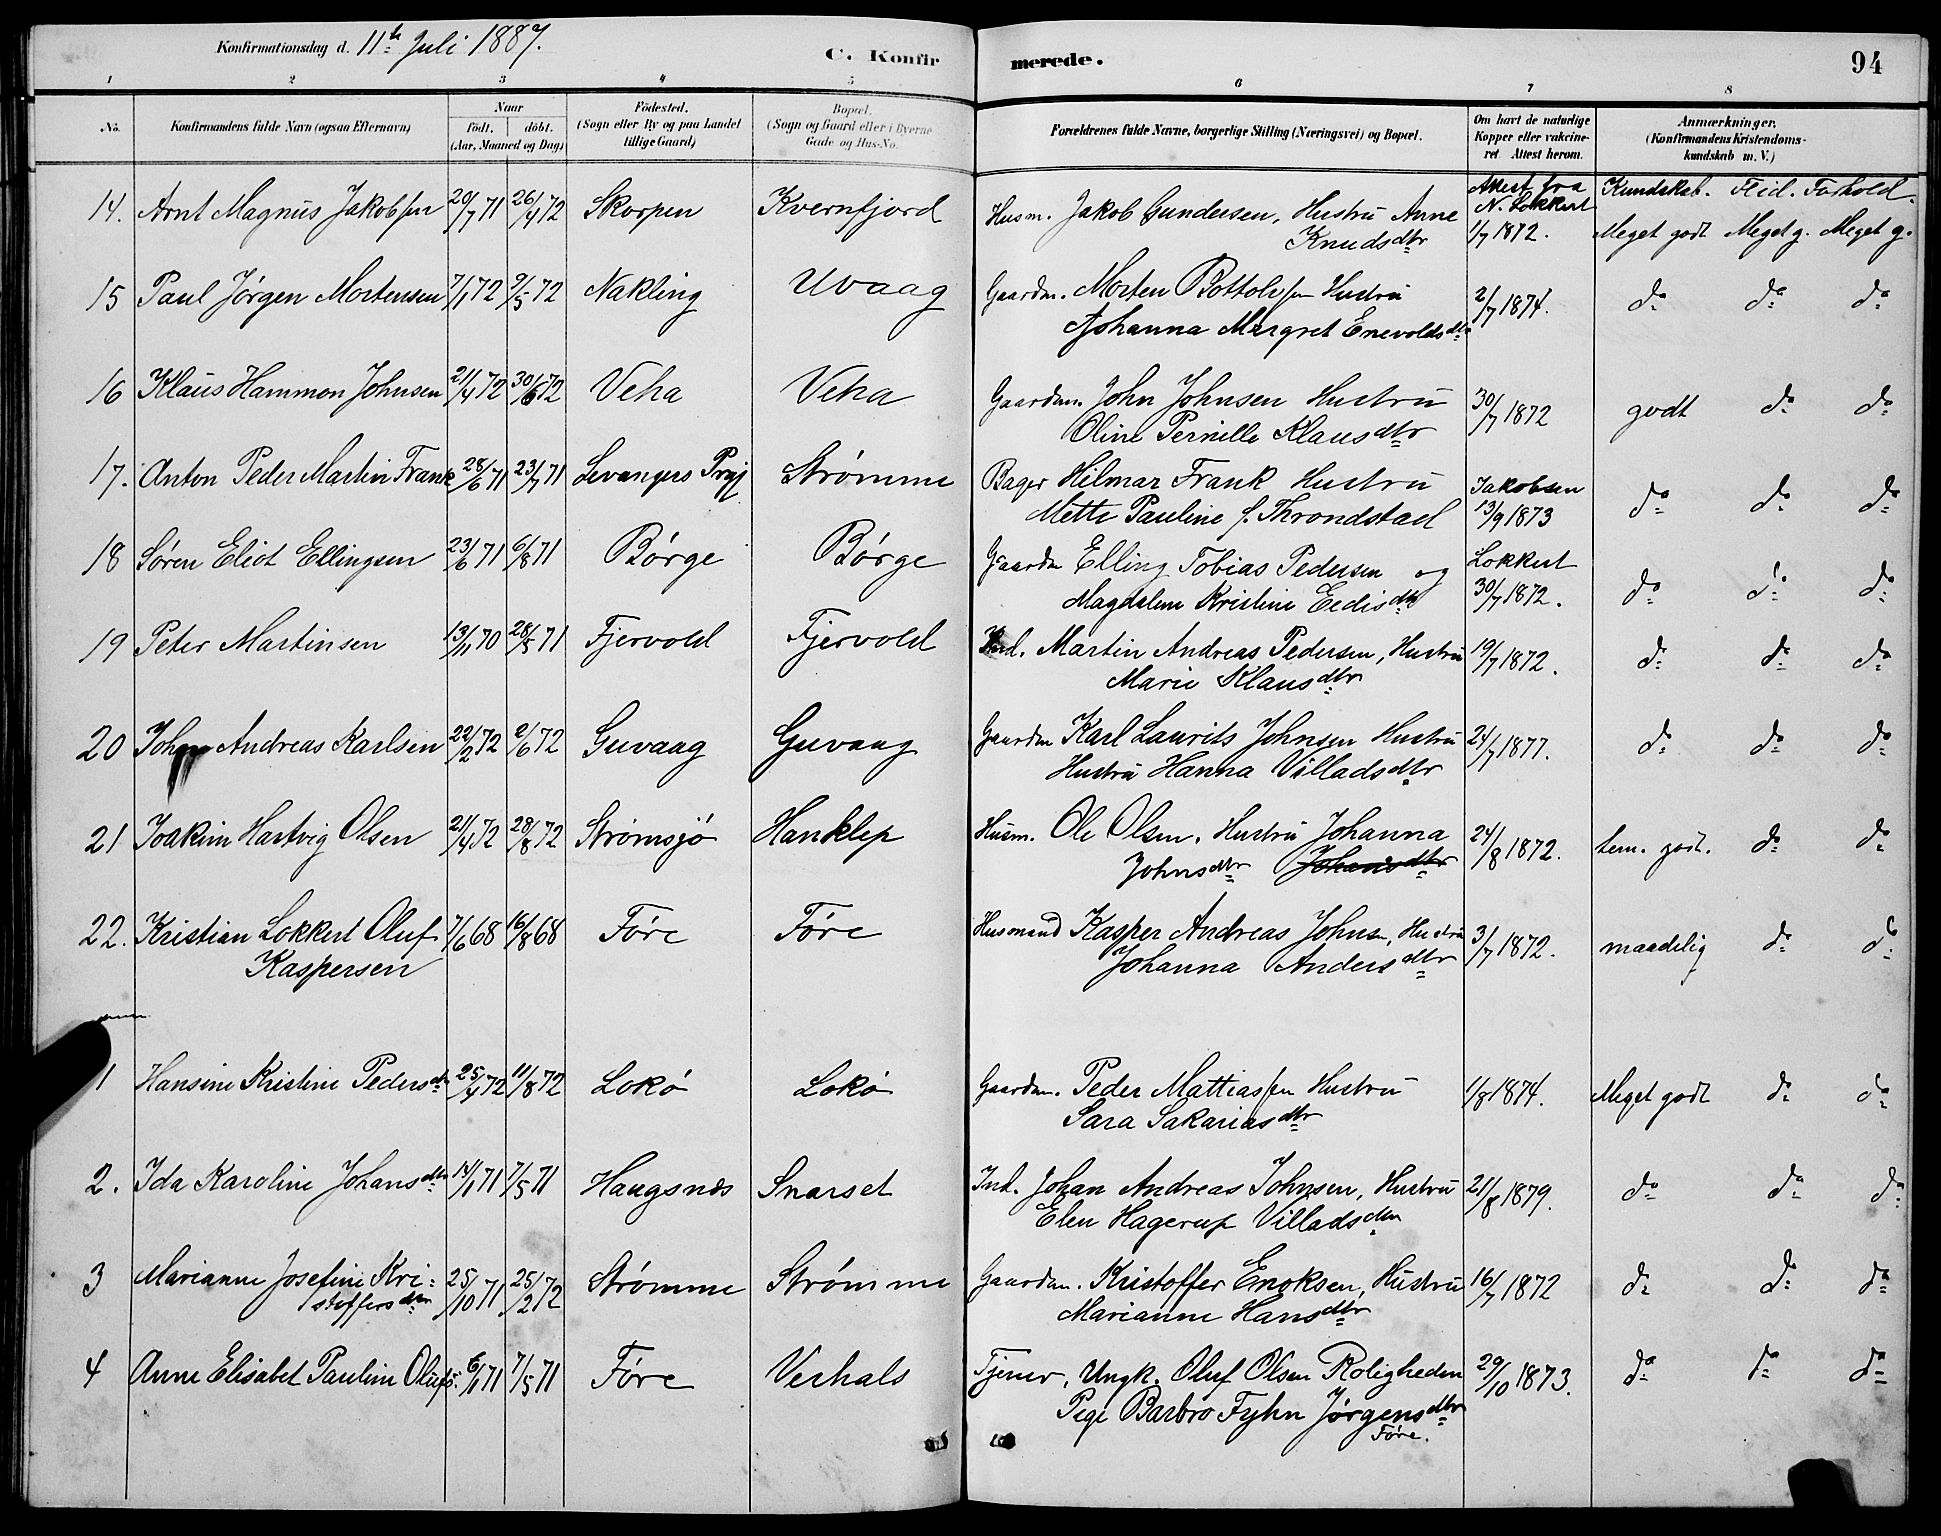 Konfirmationsdag d. 11te Juli 1887.
C. Konfirmerede.
94
1 2 3 4 5 6 7 8
No. Konfirmandens fulde Navn (ogsaa Efternavn) Naar født. døbt. (Aar, Maaned og Dag) Fødested. (Sogn eller By og paa Landet tillige Gaard) Bopæl. (Sogn og Gaard eller i Byerne Gade og Hus-No. Forældrenes fulde Navne, borgerlige Stilling (Næringsvei) og Bopæl. Om havt de naturlige Kopper eller vakcineret Attest herom. Anmærkninger. (Konfirmandens Kristendomskundskab m. V.)
14. Arnt Magnus Jakobsen 20/7 71 26/4 72 Skorpen Kvernfjord Husm. Jakob Gundersen, Hustru Anne Knudsdtr Attest fra N. Lokkert 1/7 1872. Kundskab. Flid. Forhold. Meget godt Meget g. Meget g.
15 Paul Jörgen Mortensen 7/1 72 9/5 72 Nakling Uvaag Gaardm. Morten Bottolvsen Hustru Johanna Margret Enevoldsdtr 2/7 1874. do do do
16 Klaus Hammon Johnsen 21/4 72 30/6 72 Veha Veha Gaardm. John Johnsen Hustru Oline Pernille Klausdtr 30/7 1872 godt do do
17. Anton Peder Martin Frank 28/6 71 23/7 71 Levangers Prgj Strømme Bager Hilmar Frank Hustru Mette Pauline f. Throndstad Jakobsen 13/9 1873 do do do
18 Søren Eliot Ellingsen 23/6 71 6/8 71 Börge Börge Gaardm Elling Tobias Pedersen og Magdalene Kristine Eedisdtr Lokkert 30/7 1872. do do do
19 Peter Martinsen 13/11 70 28/5 71 Fjervold Fjervold Ind. Martin Andreas Pedersen, Hustru Marie Klausdtr 19/7 1872. do do do
20 Johan Andreas Karlsen 22/2 72 2/6 72 Guvaag Guvaag Gaardm Karl Laurits Johnsen Hustru Hustru Hanna Villadsdtr 24/7 1877. do do do
21 Joakim Hartvig Olsen 21/4 72 28/8 72 Strømsjö Hanklep Husm. Ole Olsen. Hustru Johanna Johnsdtr Johansdtr 24/8 1872. tem. godt. do do
22. Kristian Lokkert Oluf Kaspersen 7/6 68 16/8 68 Före Före Husmand Kasper Andreas Johns, Hustru Johanna Andersdtr 3/7 1872. maadelig do do
1 Hansine Kristine Pedersdtr 25/4 72 11/8 72 Lokö Lokö Gaardm. Peder Mattiassen Hustru Sara Sakariasdtr 1/8 1874. Meget godt do do
2. Ida Karoline Johansdtr 14/1 71 7/5 71 Haugsnes Snarset Ind. Johan Andreas Johnsen, Hustru Elen Hagerup Villadsdtr 21/8 1879. do do do
3 Marianne Josefine Kristoffersdtr 25/10 71 25/2 72 Strømme Strømme Gaardm. Kristoffer Enoksen, Hustru Marianne Hansdtr 16/7 1872 do do do
4 Anne Elisabet Pauline Olufs. 6/1 71 7/5 71 Före Verhals Tjener, Ungk. Oluf Olsen Roligheden Pige Barbro Fyhn Jörgensdtr Före. 29/10 1873. do do do